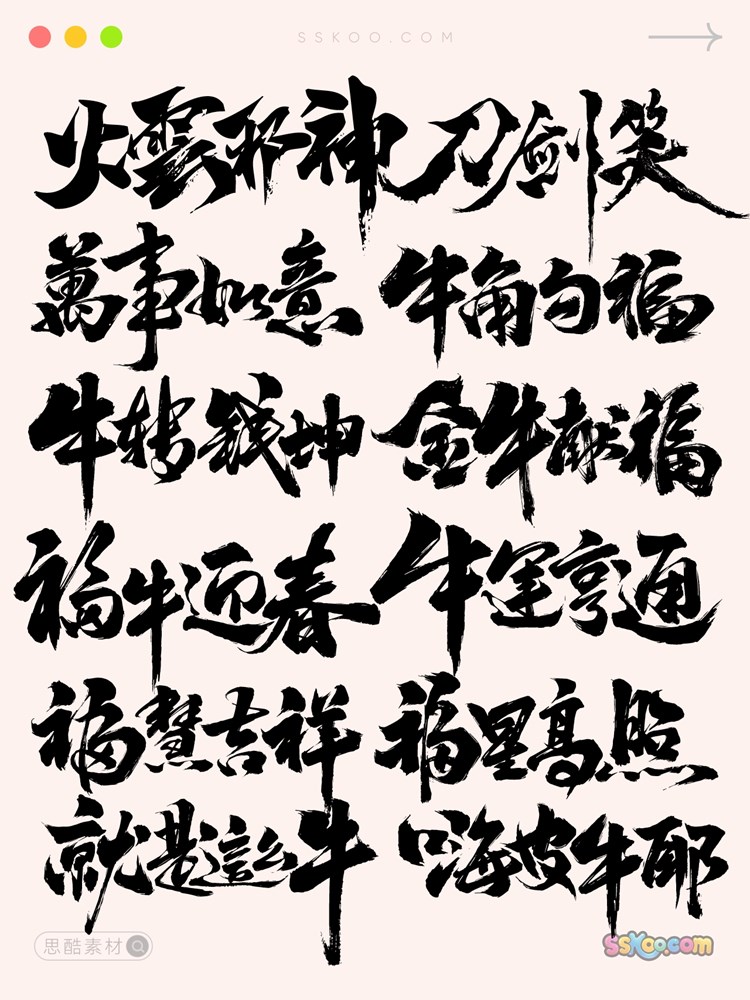 SSKOO.COM
火雲邪神 刀劍笑
萬事如意 牛角勾福
牛转钱坤 金牛献福
福牛迎春 牛運亨通
福慧吉祥 福星高照
就是這么牛 嗨皮牛耶
思酷素材 sskoo.com